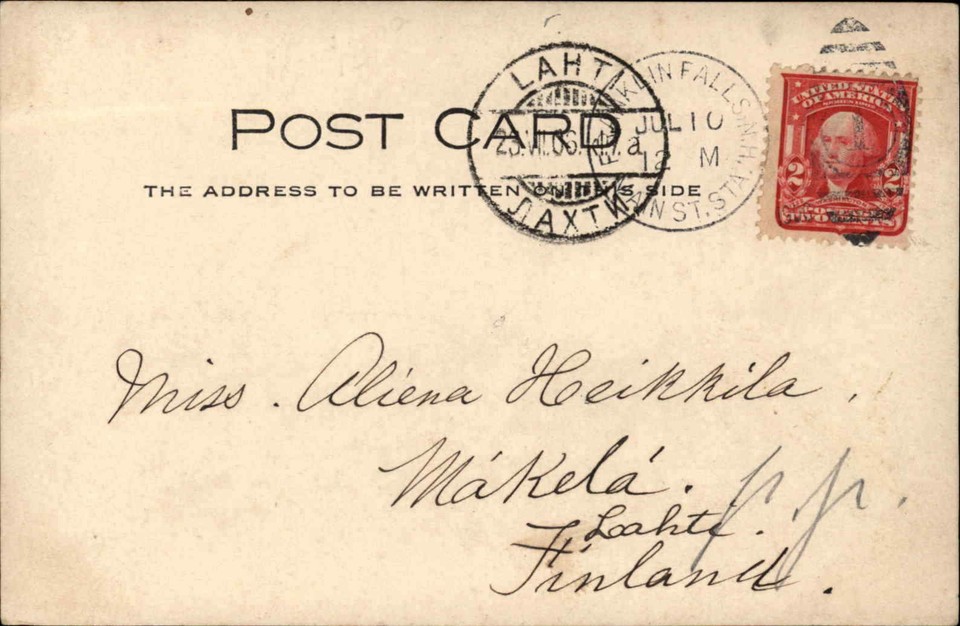 POST CARD
THE ADDRESS TO BE WRITTEN ON THIS SIDE
LAHTI
ЛАХТИ
IN FALLS, N.H.
JUL 10
12 M
AIN ST. STA.
UNITED STATES
OF AMERICA
2 2
Miss. Aliena Heikkila,
Mákelá.
Lahti.
Finland.